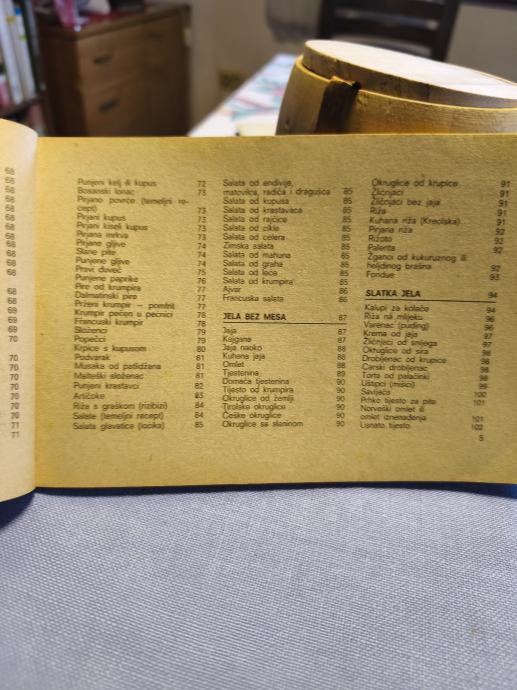 68
68
68
68
68
68
68
68
68
68
69
69
69
70
70
70
70
70
70
71
71
Punjeni kelj ili kupus 72
Bosanski lonac 73
Pirjano povrće (temeljni re-
cept) 73
Pirjani kupus 73
Pirjani kiseli kupus 73
Pirjana mrkva 73
Pirjane gljive 74
Slane pite 74
Punjene gljive 74
Pravi đuveč 75
Punjene paprike 76
Pire od krumpira 77
Dalmatinski pire 77
Prženi krumpir — pomfrit 77
Krumpir pečen u pećnici 78
Francuski krumpir 78
Složenci 79
Popečci 79
Krpice s kupusom 80
Podvarak 81
Musaka od patlidžana 81
Malteški složenac 81
Punjeni krastavci 82
Artičoke 83
Riža s graškom (rizibizi) 84
Salate (temeljni recept) 84
Salata glavatica (locika) 85
Salata od endivije,
matovilca, radiča i dragušca 85
Salata od kupusa 85
Salata od krastavaca 85
Salata od rajčice 85
Salata od cikle 85
Salata od celera 85
Zimska salata 85
Salata od mahuna 86
Salata od graha 86
Salata od leće 86
Salata od krumpira 86
Ajvar 86
Francuska salata 86
JELA BEZ MESA 87
Jaja 87
Kajgana 87
Jaja naoko 88
Kuhana jaja 88
Omlet 88
Tjestenina 89
Domaća tjestenina 90
Tijesto od krumpira 90
Okruglice od žemlji 90
Tirolske okruglice 90
Češke okruglice 90
Okruglice sa slaninom 90
Okruglice od krupice 91
Žličnjaci 91
Žličnjaci bez jaja 91
Riža 91
Kuhana riža (Kreolska) 91
Pirjana riža 92
Rižoto 92
Palenta 92
Žganci od kukuruznog ili
heljdinog brašna 92
Fondue 93
SLATKA JELA 94
Kalupi za kolače 94
Riža na mlijeku 96
Varenac (puding) 96
Krema od jaja 97
Žličnjaci od snijega 97
Okruglice od sira 98
Drobljenac od krupice 98
Carski drobljenac 98
Torta od palačinki 98
Uštipci (mišići) 99
Savijača 100
Prhko tijesto za pite 101
Norveški omlet ili
omlet iznenađenja 101
Lisnato tijesto 102
5